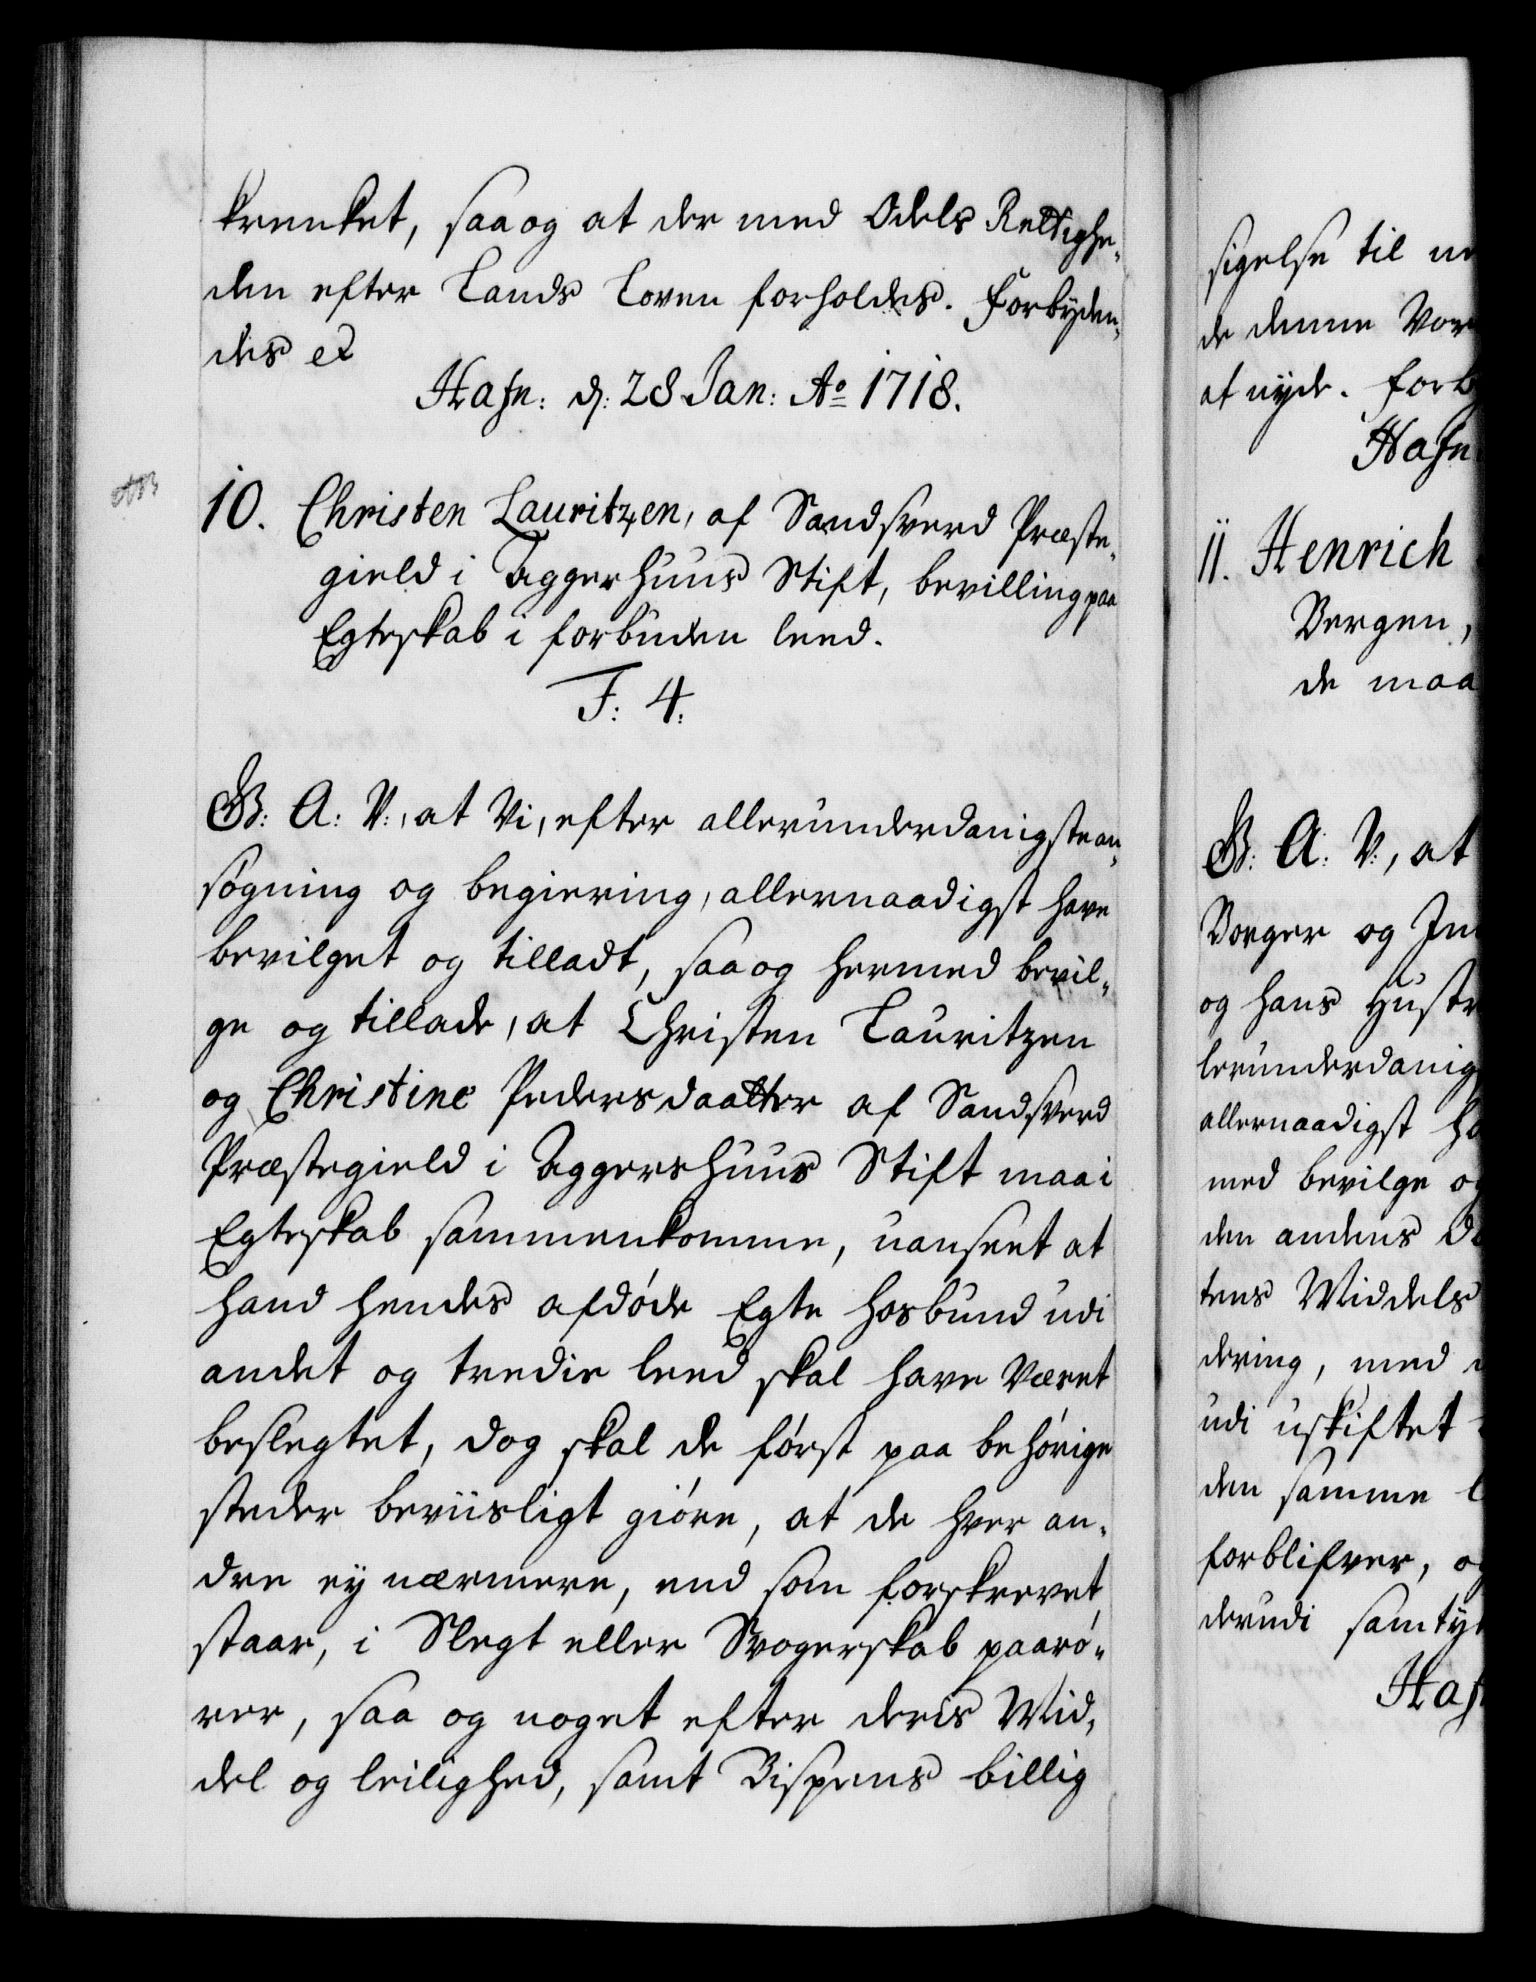 krenket, saa og at der med Odels Rettighe-
den efter Lands Loven forholdes. Forbyden-
des etc
Hafn: d: 28 Jan: Ao 1718.
10. Christen Lauritzen, af Sandsverd Præste-
gield i Aggerhuus Stift, bevilling paa
Egteskab i forbuden leed.
F: 4:
G: A: V:, at Vi, efter allerunderdanigste an-
søgning og begiering, allernaadigst have
bevilget og tilladt, saa og hermed bevil-
ge og tillade, at Christen Lauritzen
og Christine Pedersdaatter af Sandsverd
Præstegield i Aggershuus Stift maa i
Egteskab sammenkomme, uanseet at
hand hendes afdøde Egte Hosbund udi
andet og tredie leed skal have Været
beslegtet, dog skal de først paa behørige
steder beviisligt giøre, at de hver an-
dre ey nærmere, end som forskrevet
staar, i Slegt eller Svogerskab paarø-
rer, saa og noget efter deris Mid-
del og leilighed, samt Bispens billig
sigelse til
de denne
at nyde.
Hafn
11. Henrich
Bergen,
de maa
G: A: V:, at
Borger og
og hans Hustr
lerunderdanig
allernaadigst
med bevilge og
den andens
tens Middels
dering, med
udi uskiftet
den samme
forblifver, og
derudi samty
Haf